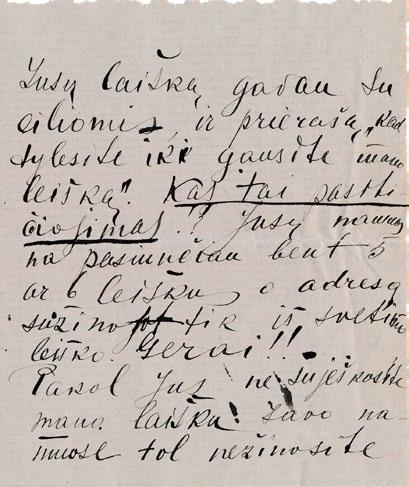 Jusų laišką gavau su
eilėmis, ir prierašą „kad
tylėsite iki gausite mano
leišką". Kas tai pasiti-
čiojimas!? Jusų mamų
na pasiunčiau bent 5
ar 6 leiškus, o adresą
sužino tik iš svetimo
leiško. Gerai!!
Pakol Jus ne suješkosite
mano laiškų savo na-
muose tol nežinosite